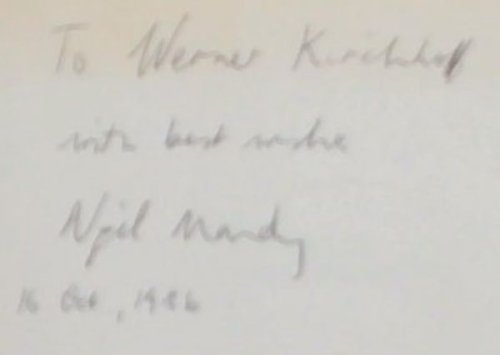 To Werner Kirchhof
with best wishes
Nigel Mandy
16 Oct, 1986